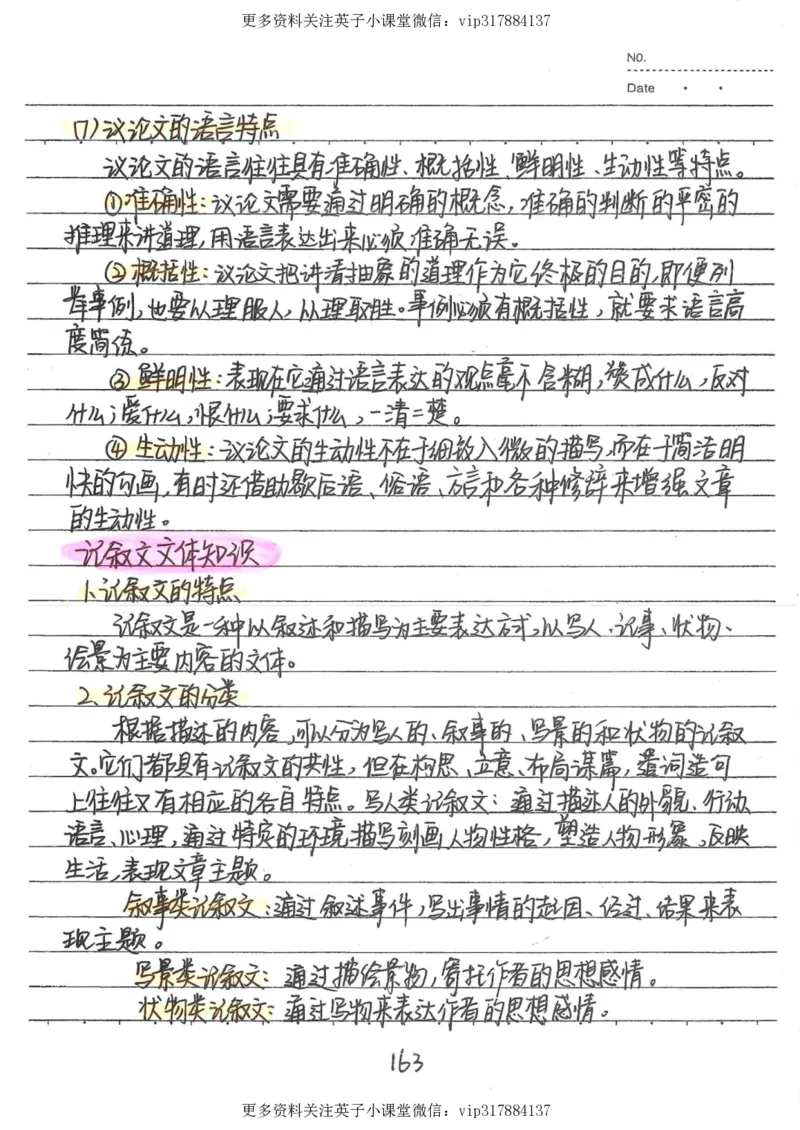 更多资料关注英子小课堂微信：vip317884137
NO.
Date
(7)议论文的语言特点
议论文的语言往往具有准确性、概括性、鲜明性、生动性等特点。
①准确性：议论文需要通过明确的概念，准确的判断的严密的
推理来讲道理，用语言表达出来必须准确无误。
②概括性：议论文把讲清抽象的道理作为它终极的目的，即便列
举事例，也要以理服人，以理取胜。事例必须有概括性，就要求语言高
度简练。
③鲜明性：表现在它通过语言表达的观点毫不含糊，赞成什么，反对
什么；爱什么，恨什么；要求什么，一清二楚。
④生动性：议论文的生动性不在于细致入微的描写，而在于简洁明
快的勾画，有时还借助歇后语、俗语、方言和各种修辞来增强文章
的生动性。
记叙文文体知识
1、记叙文的特点
记叙文是一种以叙述和描写为主要表达方式，以写人、记事、状物、
绘景为主要内容的文体。
2、记叙文的分类
根据描述的内容，可以分为写人的、叙事的、写景的和状物的记叙
文。它们都具有记叙文的共性，但在构思、立意、布局谋篇，遣词造句
上往往又有相应的各自特点。写人类记叙文：通过描述人的外貌、行动、
语言、心理，通过特定的环境描写刻画人物性格，塑造人物形象，反映
生活，表现文章主题。
叙事类记叙文：通过叙述事件，写出事情的起因、经过、结果来表
现主题。
写景类记叙文：通过描绘景物，寄托作者的思想感情。
状物类记叙文：通过写物来表达作者的思想感情。
163
更多资料关注英子小课堂微信：vip317884137